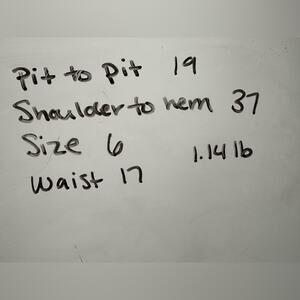 Pit to pit 19
Shoulder to hem 37
Size 6
1.14 lb
Waist 17